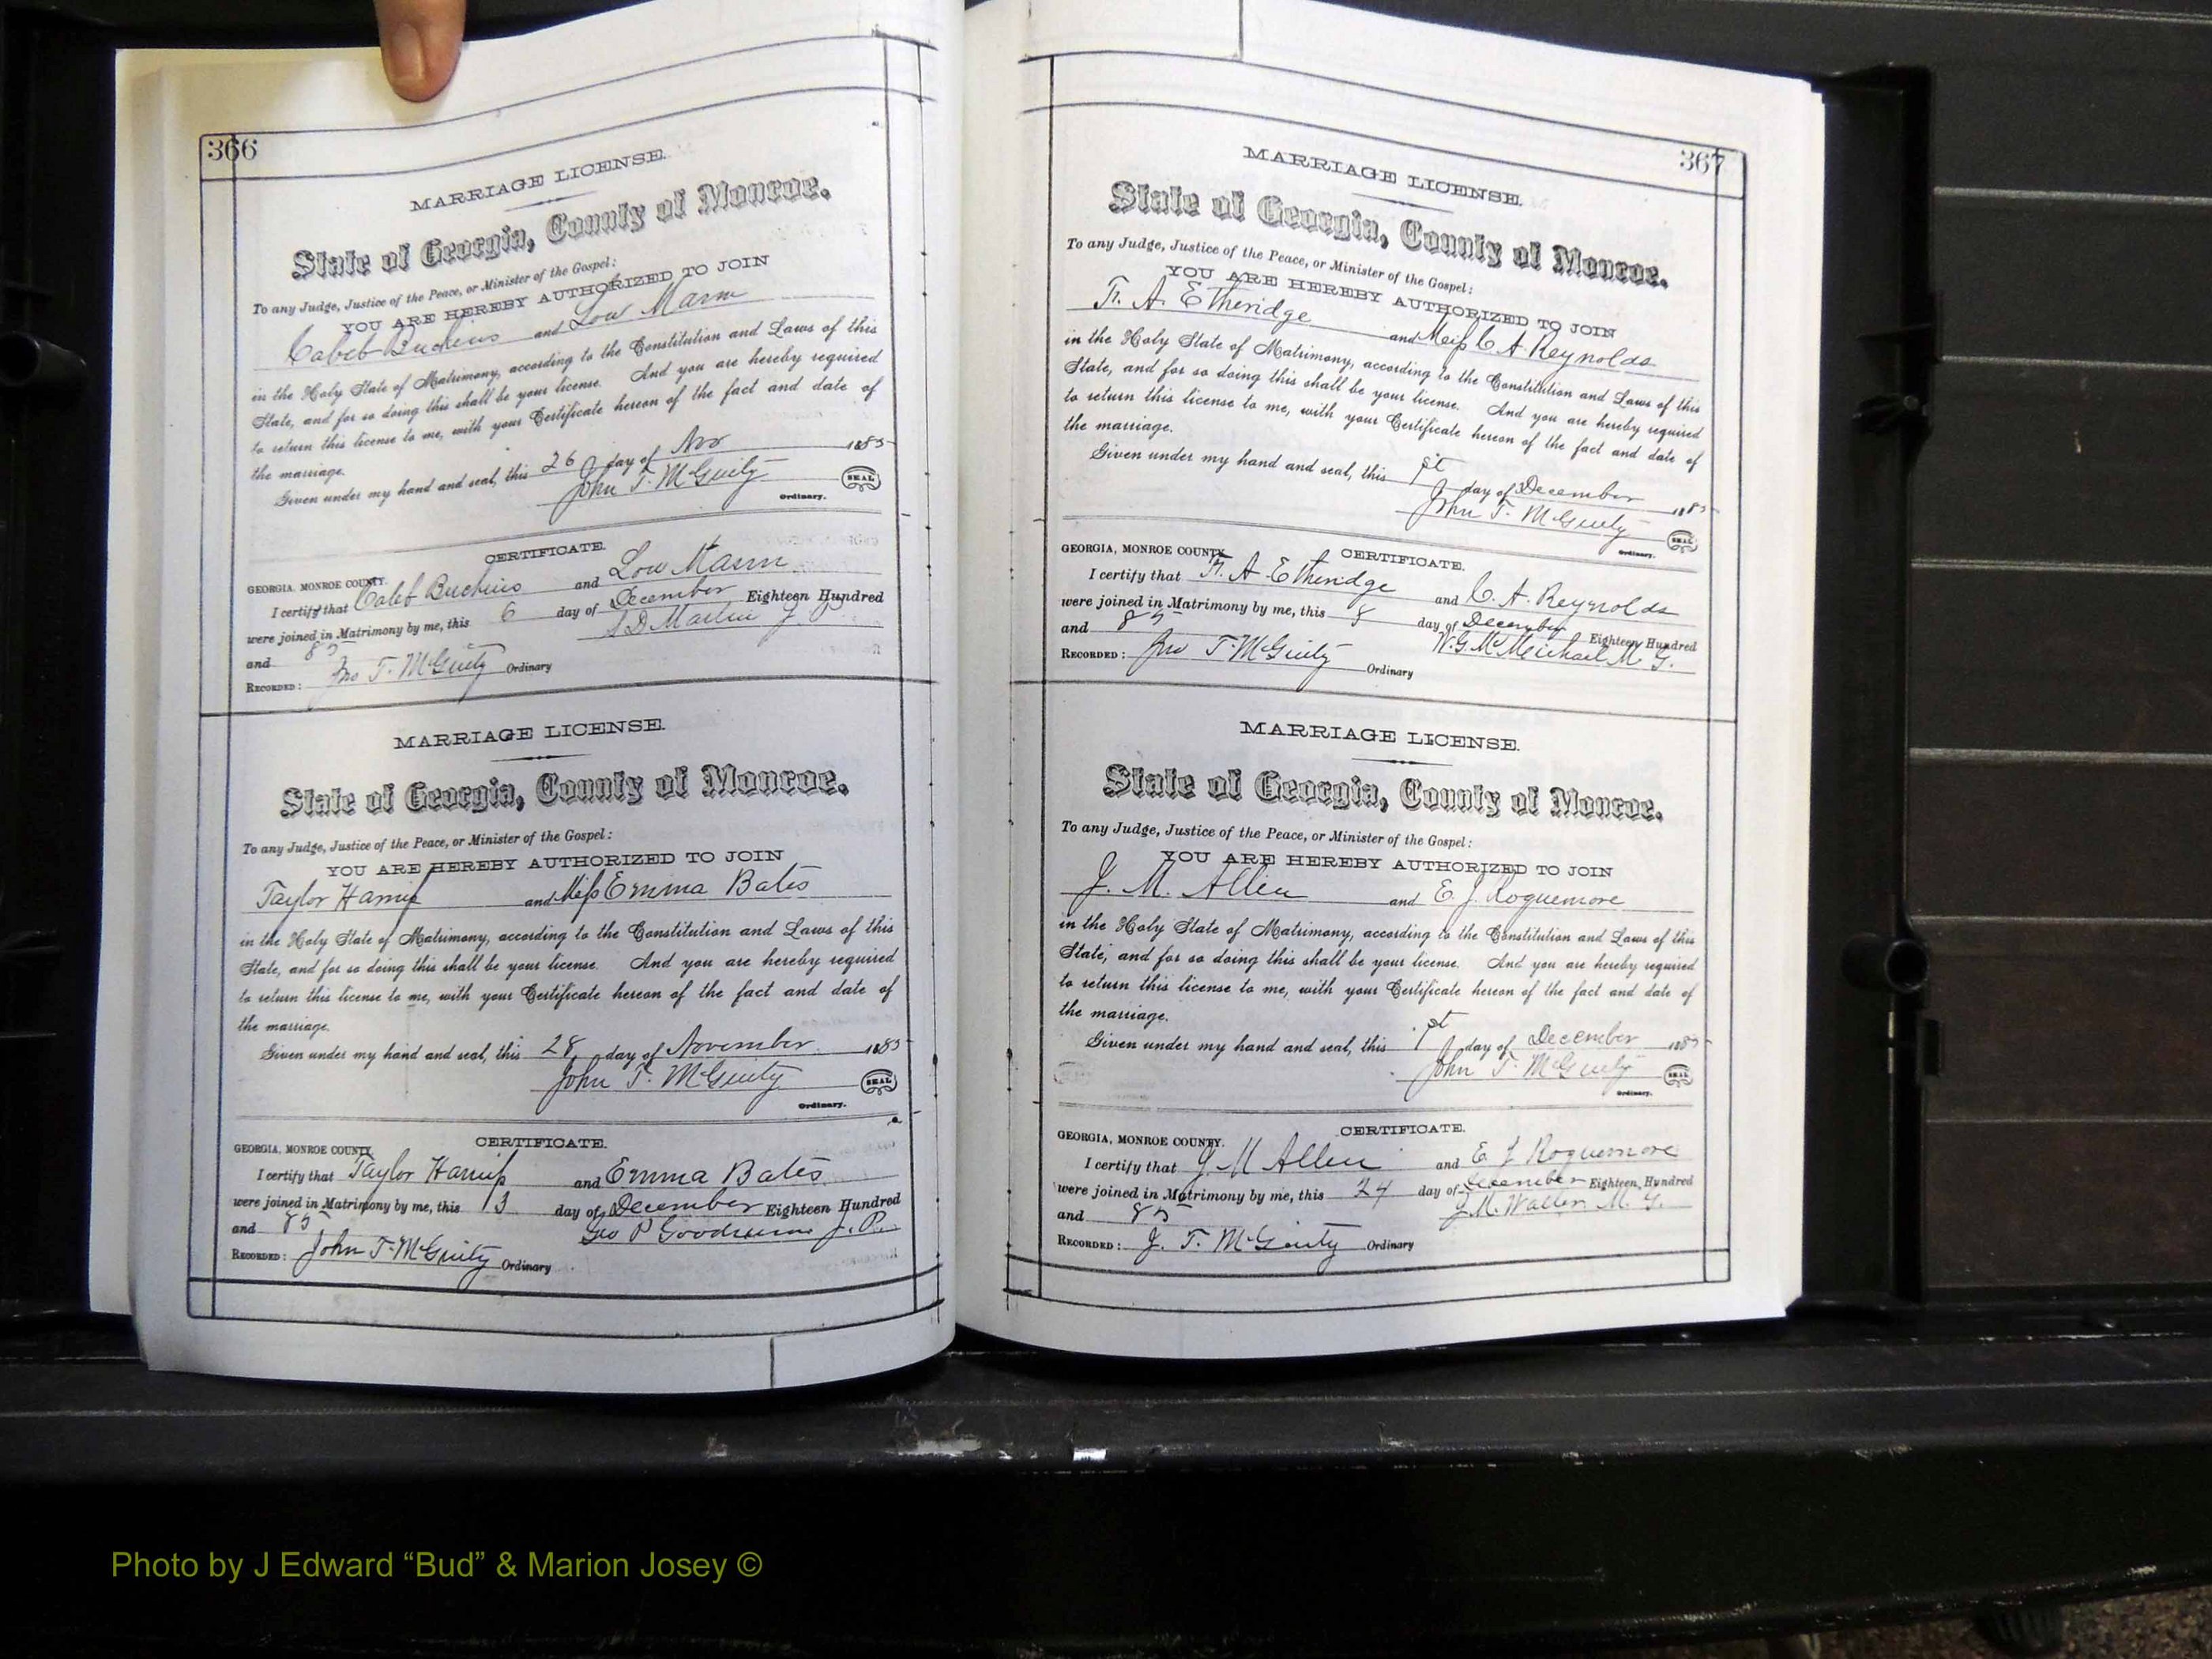 366
MARRIAGE LICENSE.
State of Georgia, County of Monroe.
To any Judge, Justice of the Peace, or Minister of the Gospel:
YOU ARE HEREBY AUTHORIZED TO JOIN
Caleb and Lou Mann
in the Holy State of Matrimony, according to the Constitution and Laws of this
State, and for so doing this shall be your license. And you are hereby required
to return this license to me, with your Certificate hereon of the fact and date of
the marriage.
Given under my hand and seal, this 26 day of Nov 1885
John T. McGinty SEAL
Ordinary.
CERTIFICATE.
GEORGIA, MONROE COUNTY.
I certify that Caleb and Lou Mann
were joined in Matrimony by me, this 6 day of December Eighteen Hundred
and 85 S D Martin J P
RECORDED: Jno T. McGinty Ordinary
MARRIAGE LICENSE.
State of Georgia, County of Monroe.
To any Judge, Justice of the Peace, or Minister of the Gospel:
YOU ARE HEREBY AUTHORIZED TO JOIN
Taylor Harris and Miss Emma Bates
in the Holy State of Matrimony, according to the Constitution and Laws of this
State, and for so doing this shall be your license. And you are hereby required
to return this license to me, with your Certificate hereon of the fact and date of
the marriage.
Given under my hand and seal, this 28, day of November 1885
John T. McGinty SEAL
Ordinary.
CERTIFICATE.
GEORGIA, MONROE COUNTY.
I certify that Taylor Harris and Emma Bates
were joined in Matrimony by me, this 13 day of December Eighteen Hundred
and 85 Geo P J. P.
RECORDED: John T. McGinty Ordinary
367
MARRIAGE LICENSE.
State of Georgia, County of Monroe.
To any Judge, Justice of the Peace, or Minister of the Gospel:
YOU ARE HEREBY AUTHORIZED TO JOIN
F. A. Etheridge and Miss C. A. Reynolds
in the Holy State of Matrimony, according to the Constitution and Laws of this
State, and for so doing this shall be your license. And you are hereby required
to return this license to me, with your Certificate hereon of the fact and date of
the marriage.
Given under my hand and seal, this 1st day of December 1885
John T. McGinty SEAL
Ordinary.
CERTIFICATE.
GEORGIA, MONROE COUNTY.
I certify that F. A Etheridge and C. A. Reynolds
were joined in Matrimony by me, this 8 day of December Eighteen Hundred
and 85 W. G. McMichael M. G.
RECORDED: Jno T. McGinty Ordinary
MARRIAGE LICENSE.
State of Georgia, County of Monroe.
To any Judge, Justice of the Peace, or Minister of the Gospel:
YOU ARE HEREBY AUTHORIZED TO JOIN
J. M. Allen and E. J. Roquemore
in the Holy State of Matrimony, according to the Constitution and Laws of this
State, and for so doing this shall be your license. And you are hereby required
to return this license to me, with your Certificate hereon of the fact and date of
the marriage.
Given under my hand and seal, this 1st day of December 1885
John T. McGinty SEAL
Ordinary.
CERTIFICATE.
GEORGIA, MONROE COUNTY.
I certify that J M Allen and E. J Roquemore
were joined in Matrimony by me, this 24 day of December Eighteen Hundred
and 85 J. M. Waller M. G.
RECORDED: J. T. McGinty Ordinary
Photo by J Edward “Bud” & Marion Josey ©